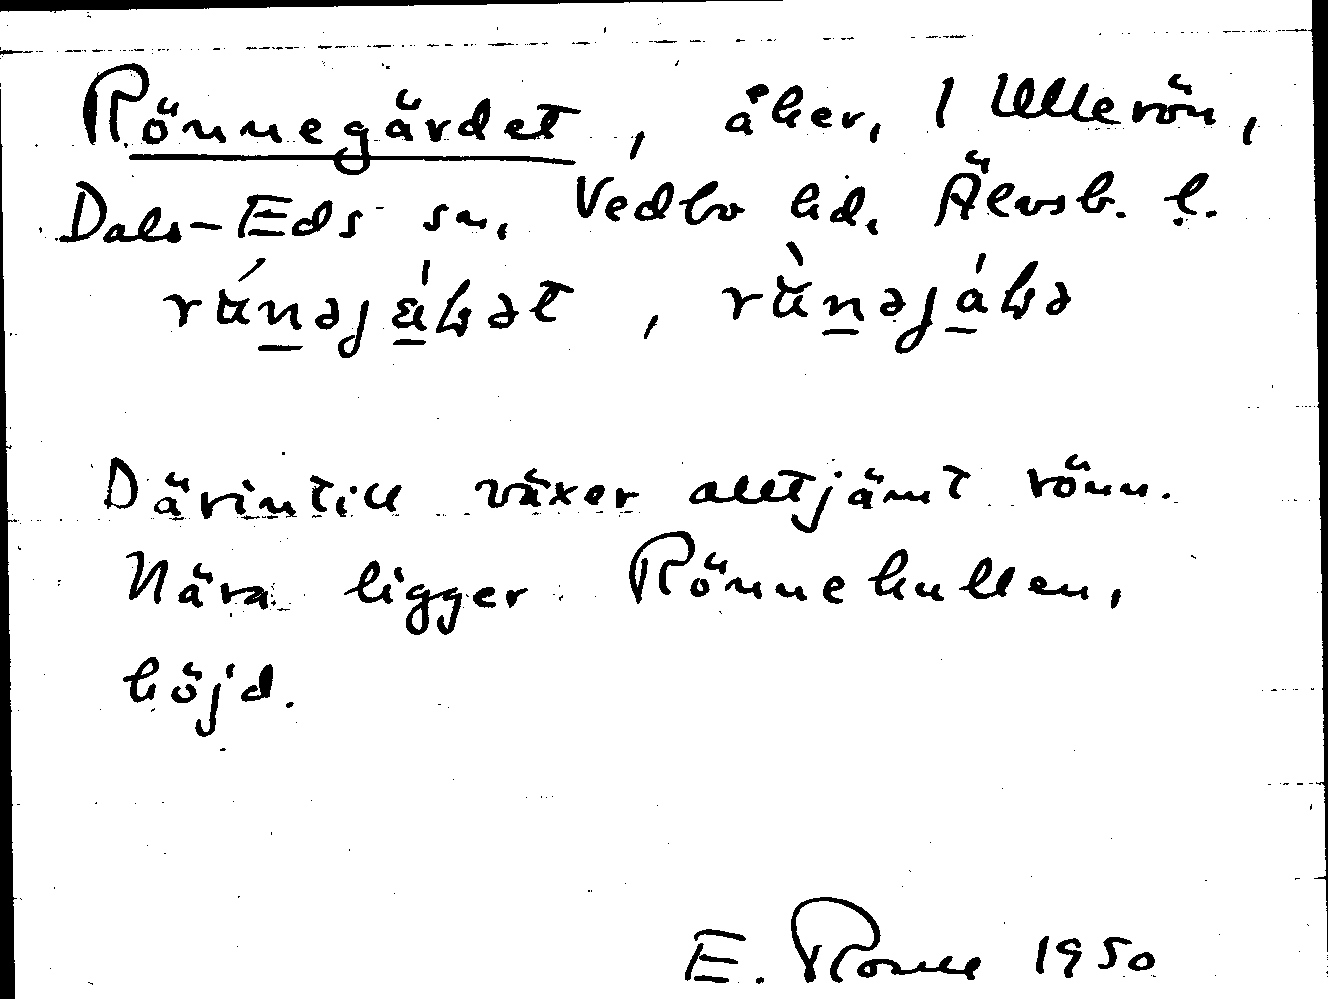 Rönnegärdet, åker, 1 Ullerön,
Dals-Eds sn, Vedbo hd, Älvsb. l.
Därintill växer alltjämt rönn.
Nära ligger Rönnekullen,
höjd.
E. 1950